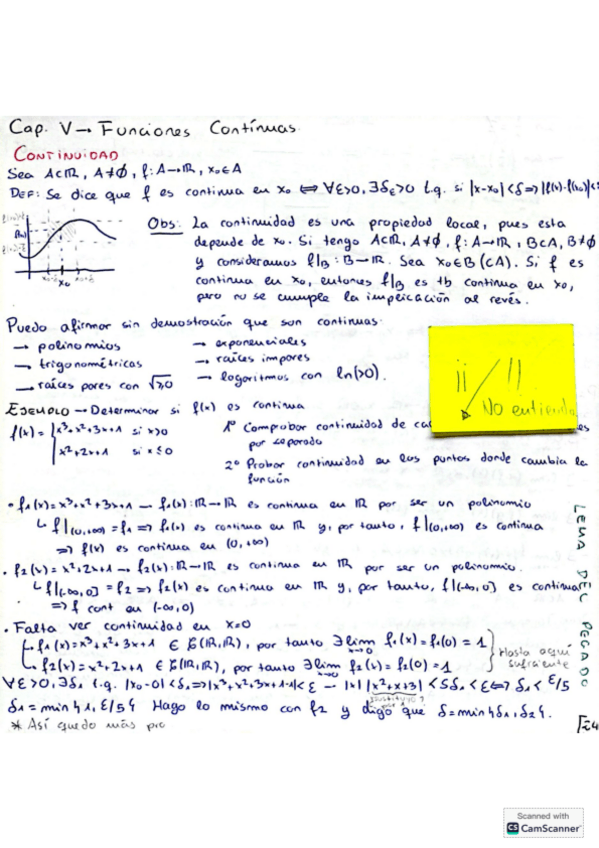 Cap. V → Funciones Continuas
CONTINUIDAD
Sea A⊂ℝ, A≠∅, f: A→ℝ, x₀∈A
DEF: Se dice que f es continua en x₀ ⟺ ∀ε>0, ∃δε>0 t.q. si |x-x₀|<δ ⇒ |f(x)-f(x₀)|<ε
Obs: La continuidad es una propiedad local, pues esta
depende de x₀. Si tengo A⊂ℝ, A≠∅, f: A→ℝ, B⊂A, B≠∅
y consideramos f|B: B→ℝ. Sea x₀∈B (⊂A). Si f es
continua en x₀, entonces f|B es tb continua en x₀,
pero no se cumple la implicación al revés.
x₀-δ x₀ x₀+δ
Puedo afirmar sin demostración que son continuas:
→ polinomios → exponenciales
→ trigonométricas → raíces impares
→ raíces pares con √≥0 → logaritmos con ln(>0).
¡¡ !!
No entiendo
EJEMPLO → Determinar si f(x) es continua
f(x) = { x³+x²+3x+1 si x>0
x²+2x+1 si x≤0
1º Comprobar continuidad de
por separado
2º Probar continuidad en los puntos donde cambia la
función
• f₁(x)=x³+x²+3x+1 → f₁(x): ℝ→ℝ es continua en ℝ por ser un polinomio
↳ f|(0,+∞) = f₁ ⇒ f₁(x) es continua en ℝ y, por tanto, f|(0,+∞) es continua
⇒ f(x) es continua en (0,+∞)
• f₂(x)=x²+2x+1 → f₂(x): ℝ→ℝ es continua en ℝ por ser un polinomio.
↳ f|(-∞,0] = f₂ ⇒ f₂(x) es continua en ℝ y, por tanto, f|(-∞,0] es continua
⇒ f cont en (-∞,0)
• Falta ver continuidad en x=0
↳ f₁(x)=x³+x²+3x+1 ∈ C(ℝ,ℝ), por tanto ∃lim x→0 f₁(x)=f₁(0)=1
↳ f₂(x)=x²+2x+1 ∈ C(ℝ,ℝ), por tanto ∃lim x→0 f₂(x)=f₂(0)=1
Hasta aquí
suficiente
∀ε>0, ∃δ₁ t.q. |x-0|<δ₁ ⇒ |x³+x²+3x+1-1|<ε → |x| |x²+x+3| <5δ₁<ε ⟺ δ₁<ε/5
δ₁=min{1, ε/5} Hago lo mismo con f₂ y digo que δ=min{δ₁,δ₂}.
* Así quedo más pro
LEMA DEL PEGADO
Scanned with
CS CamScanner